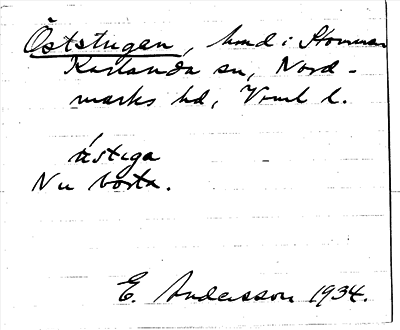 Öststugen, hmd i Stommen
Karlanda sn, Nord-
marks hd, Vrml l.
östiga
Nu borta.
E. Andersson 1934.